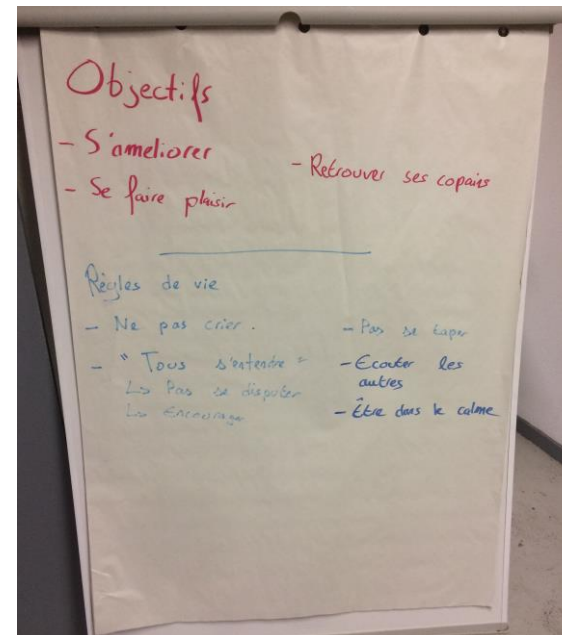 Objectifs
- S'ameliorer
- Se faire plaisir
- Retrouver ses copains
Règles de vie
- Ne pas crier.
- "Tous s'entendre"
↳ Pas se disputer
↳ Encourager
- Pas se taper
- Ecouter les
autres
- Être dans le calme